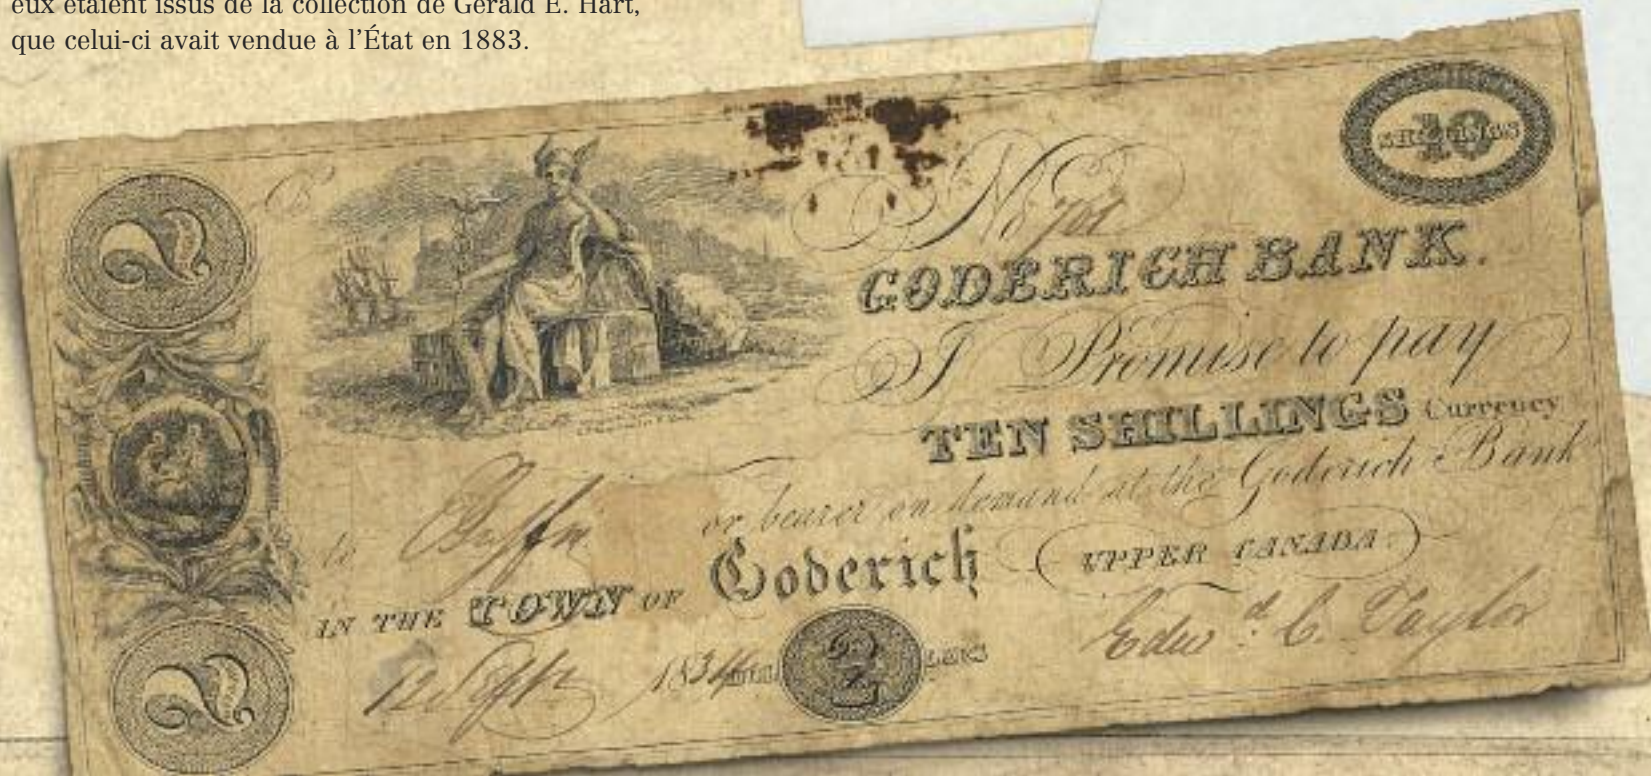 eux étaient issus de la collection de Gerald E. Hart,
que celui-ci avait vendue à l'État en 1883.
2
10
SHILLINGS
No
GODERICH BANK.
I Promise to pay
TEN SHILLINGS Currency
to or bearer on demand at the Goderich Bank
IN THE TOWN OF Goderich UPPER CANADA.
12 Sept 1834
2
2
Edwd. C. Taylor